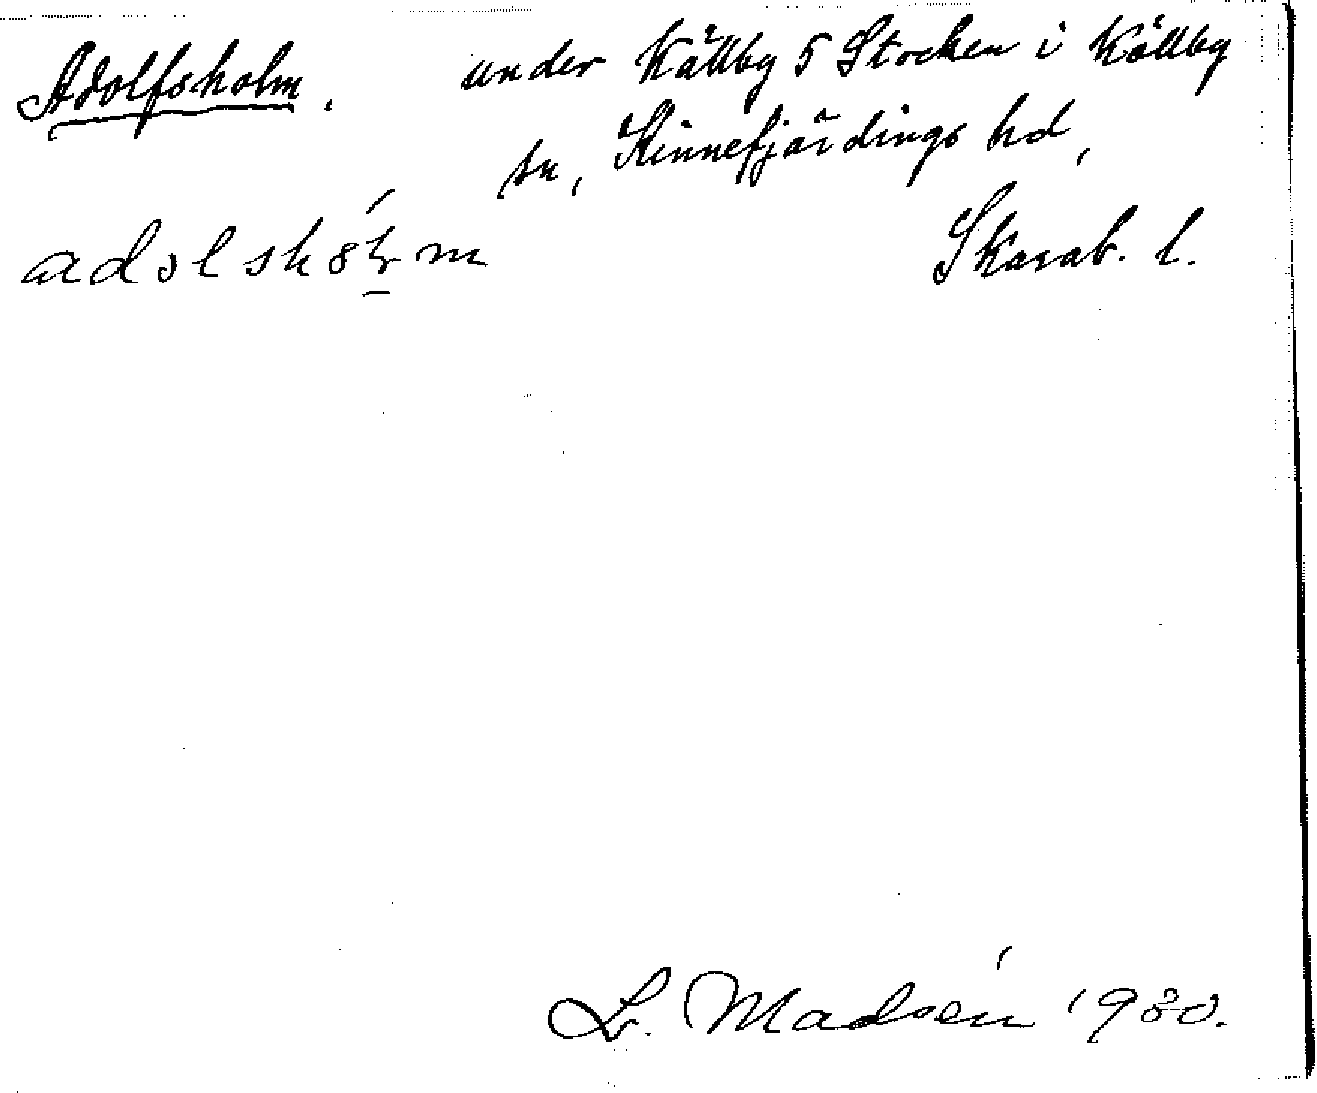 Adolfsholm. under Källby 5 Stocken i Källby
sn, Kinnefjärdings hd,
Skarab. l.
L. Madsén 1980.